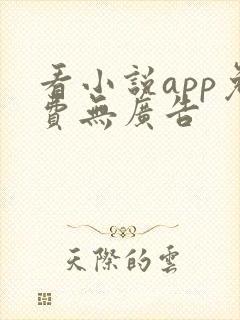 看小説app免
費無廣告
天際的雲